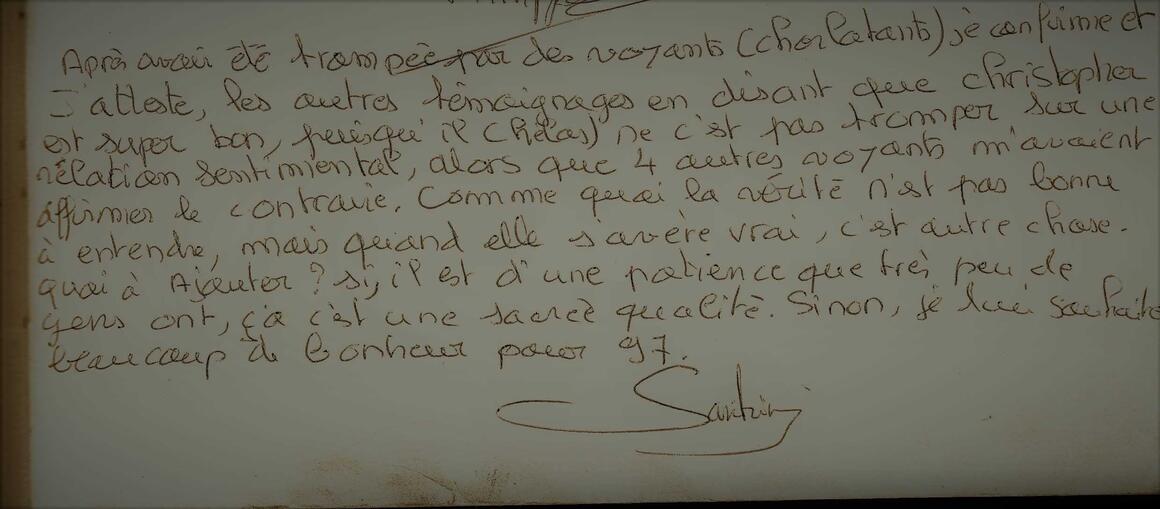 Après avoir été trompée par des voyants (chorlatants) jè confirme et
J'atteste, les autres témoignages en disant que christopher
est super bon, puisqu'il (hélas) ne c'st pas tromper sur une
rélation sentimental, alors que 4 autres voyants m'avaient
affirmer le contraire. Comme quoi la vérité n'est pas bonne
à entendre, mais quand elle s'avère vrai, c'est autre chose.
quoi à Ajouter ? si, il est d'une patience que très peu de
gens ont, ça c'st une sacrée qualité. Sinon, je lui souhaite
beaucoup de bonheur pour 97.